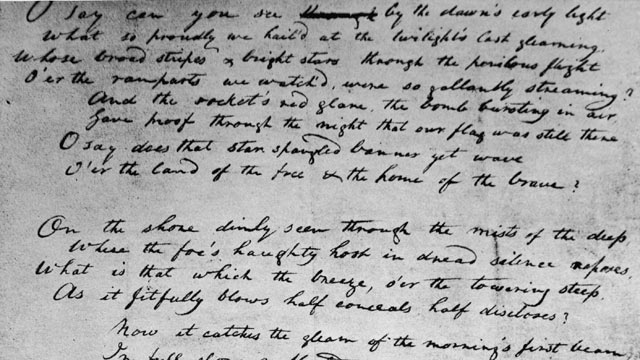 O say can you see through by the dawn's early light
What so proudly we hail'd at the twilight's last gleaming,
Whose broad stripes & bright stars through the perilous fight
O'er the ramparts we watch'd, were so gallantly streaming?
And the rocket's red glare, the bomb bursting in air,
Gave proof through the night that our flag was still there
O say does that star spangled banner yet wave
O'er the land of the free & the home of the brave?
On the shore dimly seen through the mists of the deep,
Where the foe's haughty host in dread silence reposes,
What is that which the breeze, o'er the towering steep,
As it fitfully blows, half conceals half discloses?
Now it catches the gleam of the morning's first beam,
In full